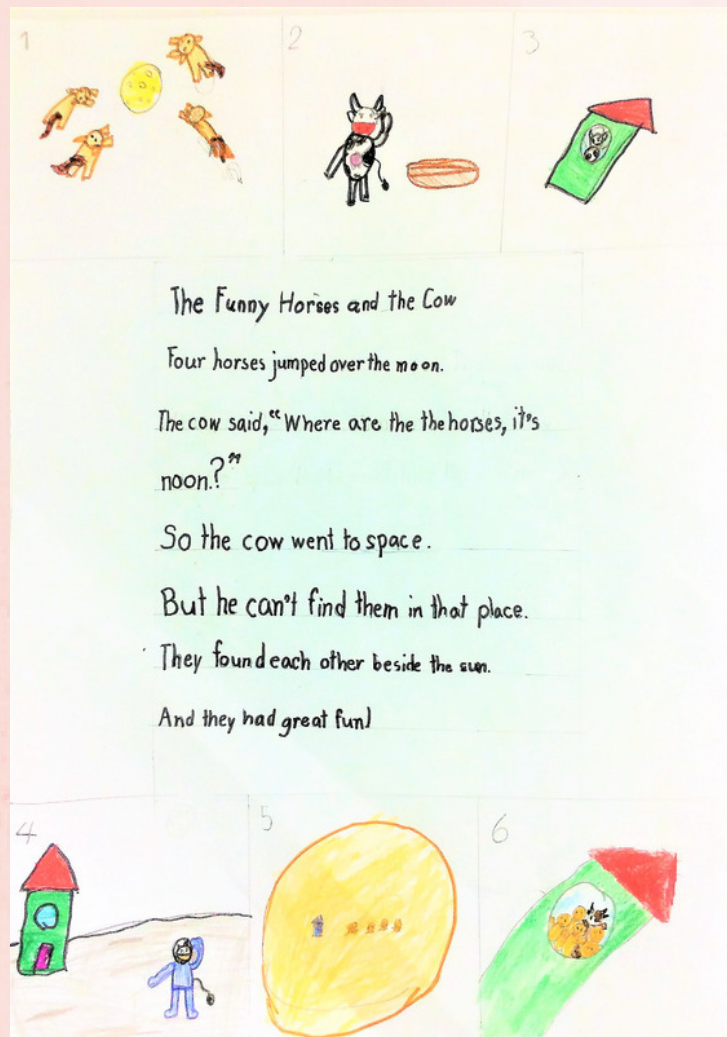 1
2
3
The Funny Horses and the Cow
Four horses jumped over the moon.
The cow said, “Where are the the horses, it's
noon.?”
So the cow went to space.
But he can't find them in that place.
They found each other beside the sun.
And they had great fun!
4
5
6